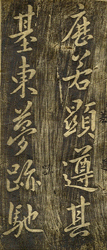 若顯遵其
基東夢跡馳